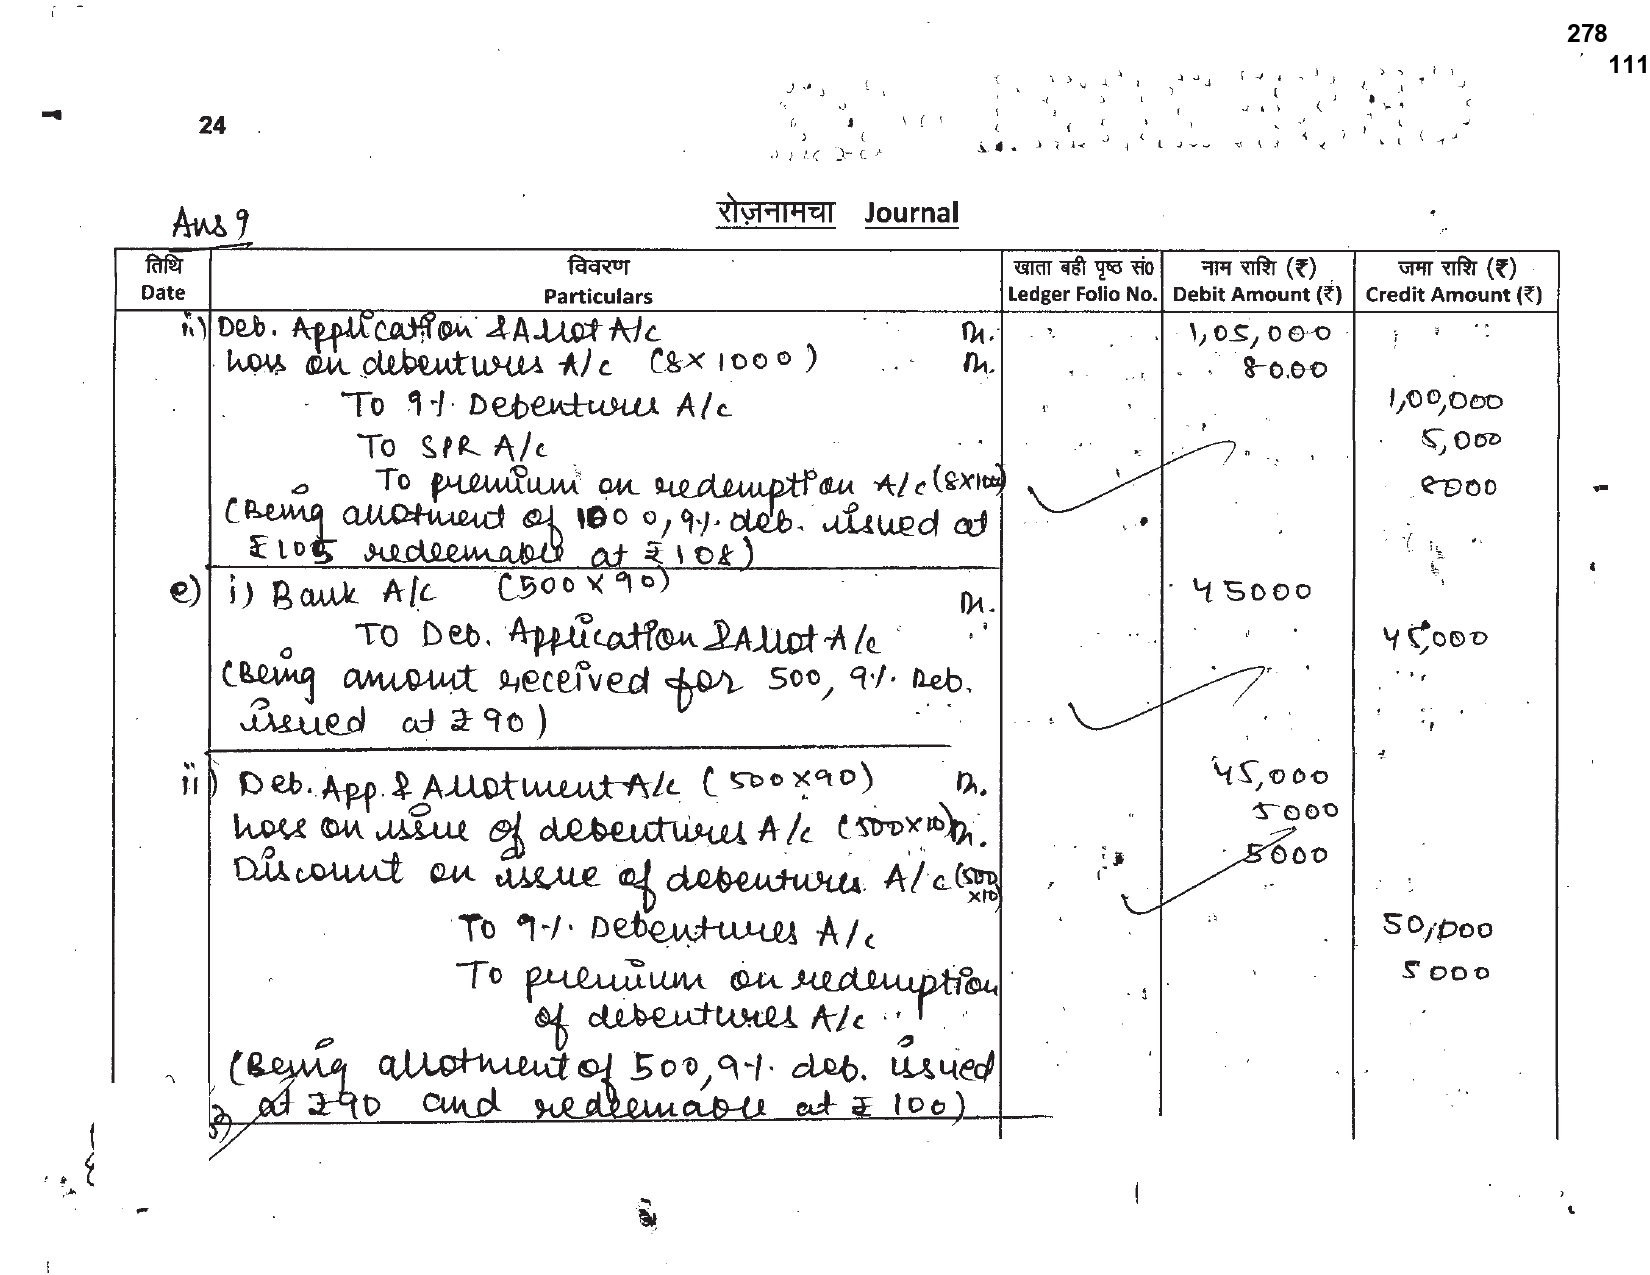 278
111
24
Ans 9
रोज़नामचा Journal
तिथि विवरण खाता बही पृष्ठ सं० नाम राशि (₹) जमा राशि (₹)
Date Particulars Ledger Folio No. Debit Amount (₹) Credit Amount (₹)
ii) Deb. Application & Allot A/c Dr. 1,05,000
Loss on debentures A/c (8×1000) Dr. 8000
To 9% Debentures A/c 1,00,000
To SPR A/c 5,000
To premium on redemption A/c (8×1000) 8000
(Being allotment of 1000, 9% deb. issued at
₹105 redeemable at ₹108)
e) i) Bank A/c (500×90) Dr. 45000
To Deb. Application & Allot A/c 45,000
(Being amount received for 500, 9% Deb.
issued at ₹90)
ii) Deb. App. & Allotment A/c (500×90) Dr. 45,000
Loss on issue of debentures A/c (500×10) Dr. 5000
Discount on issue of debentures A/c (500 ×10) 5000
To 9% Debentures A/c 50,000
To premium on redemption 5000
of debentures A/c
(Being allotment of 500, 9% deb. issued
at ₹90 and redeemable at ₹100)